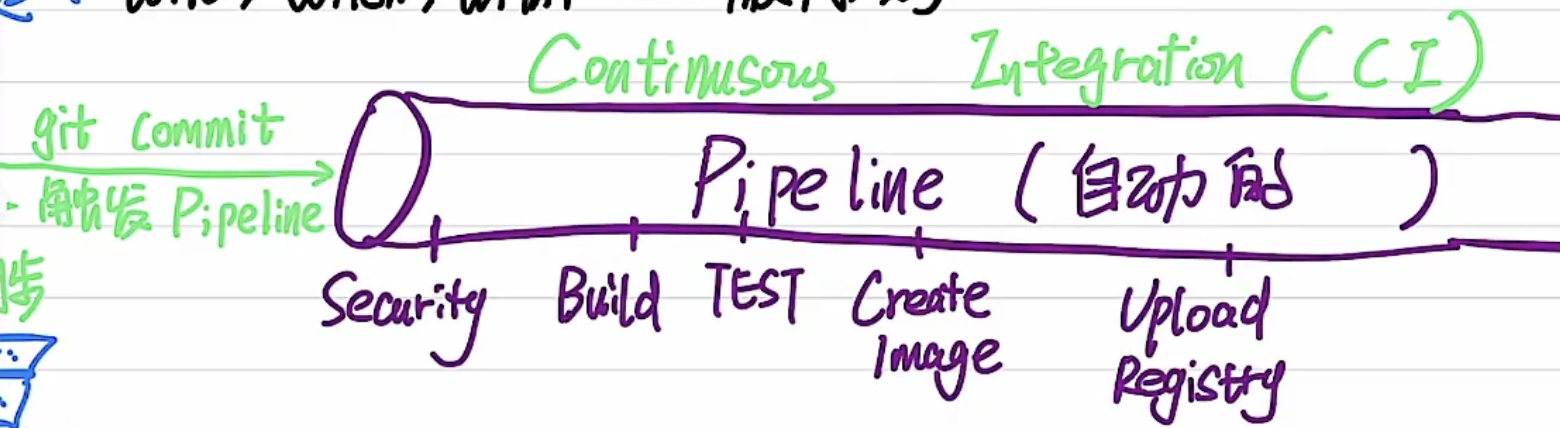 Continusous Integration ( CI )
git commit
· 触发 Pipeline
Pipeline ( 自动的 )
步
Security Build TEST Create Image Upload Registry